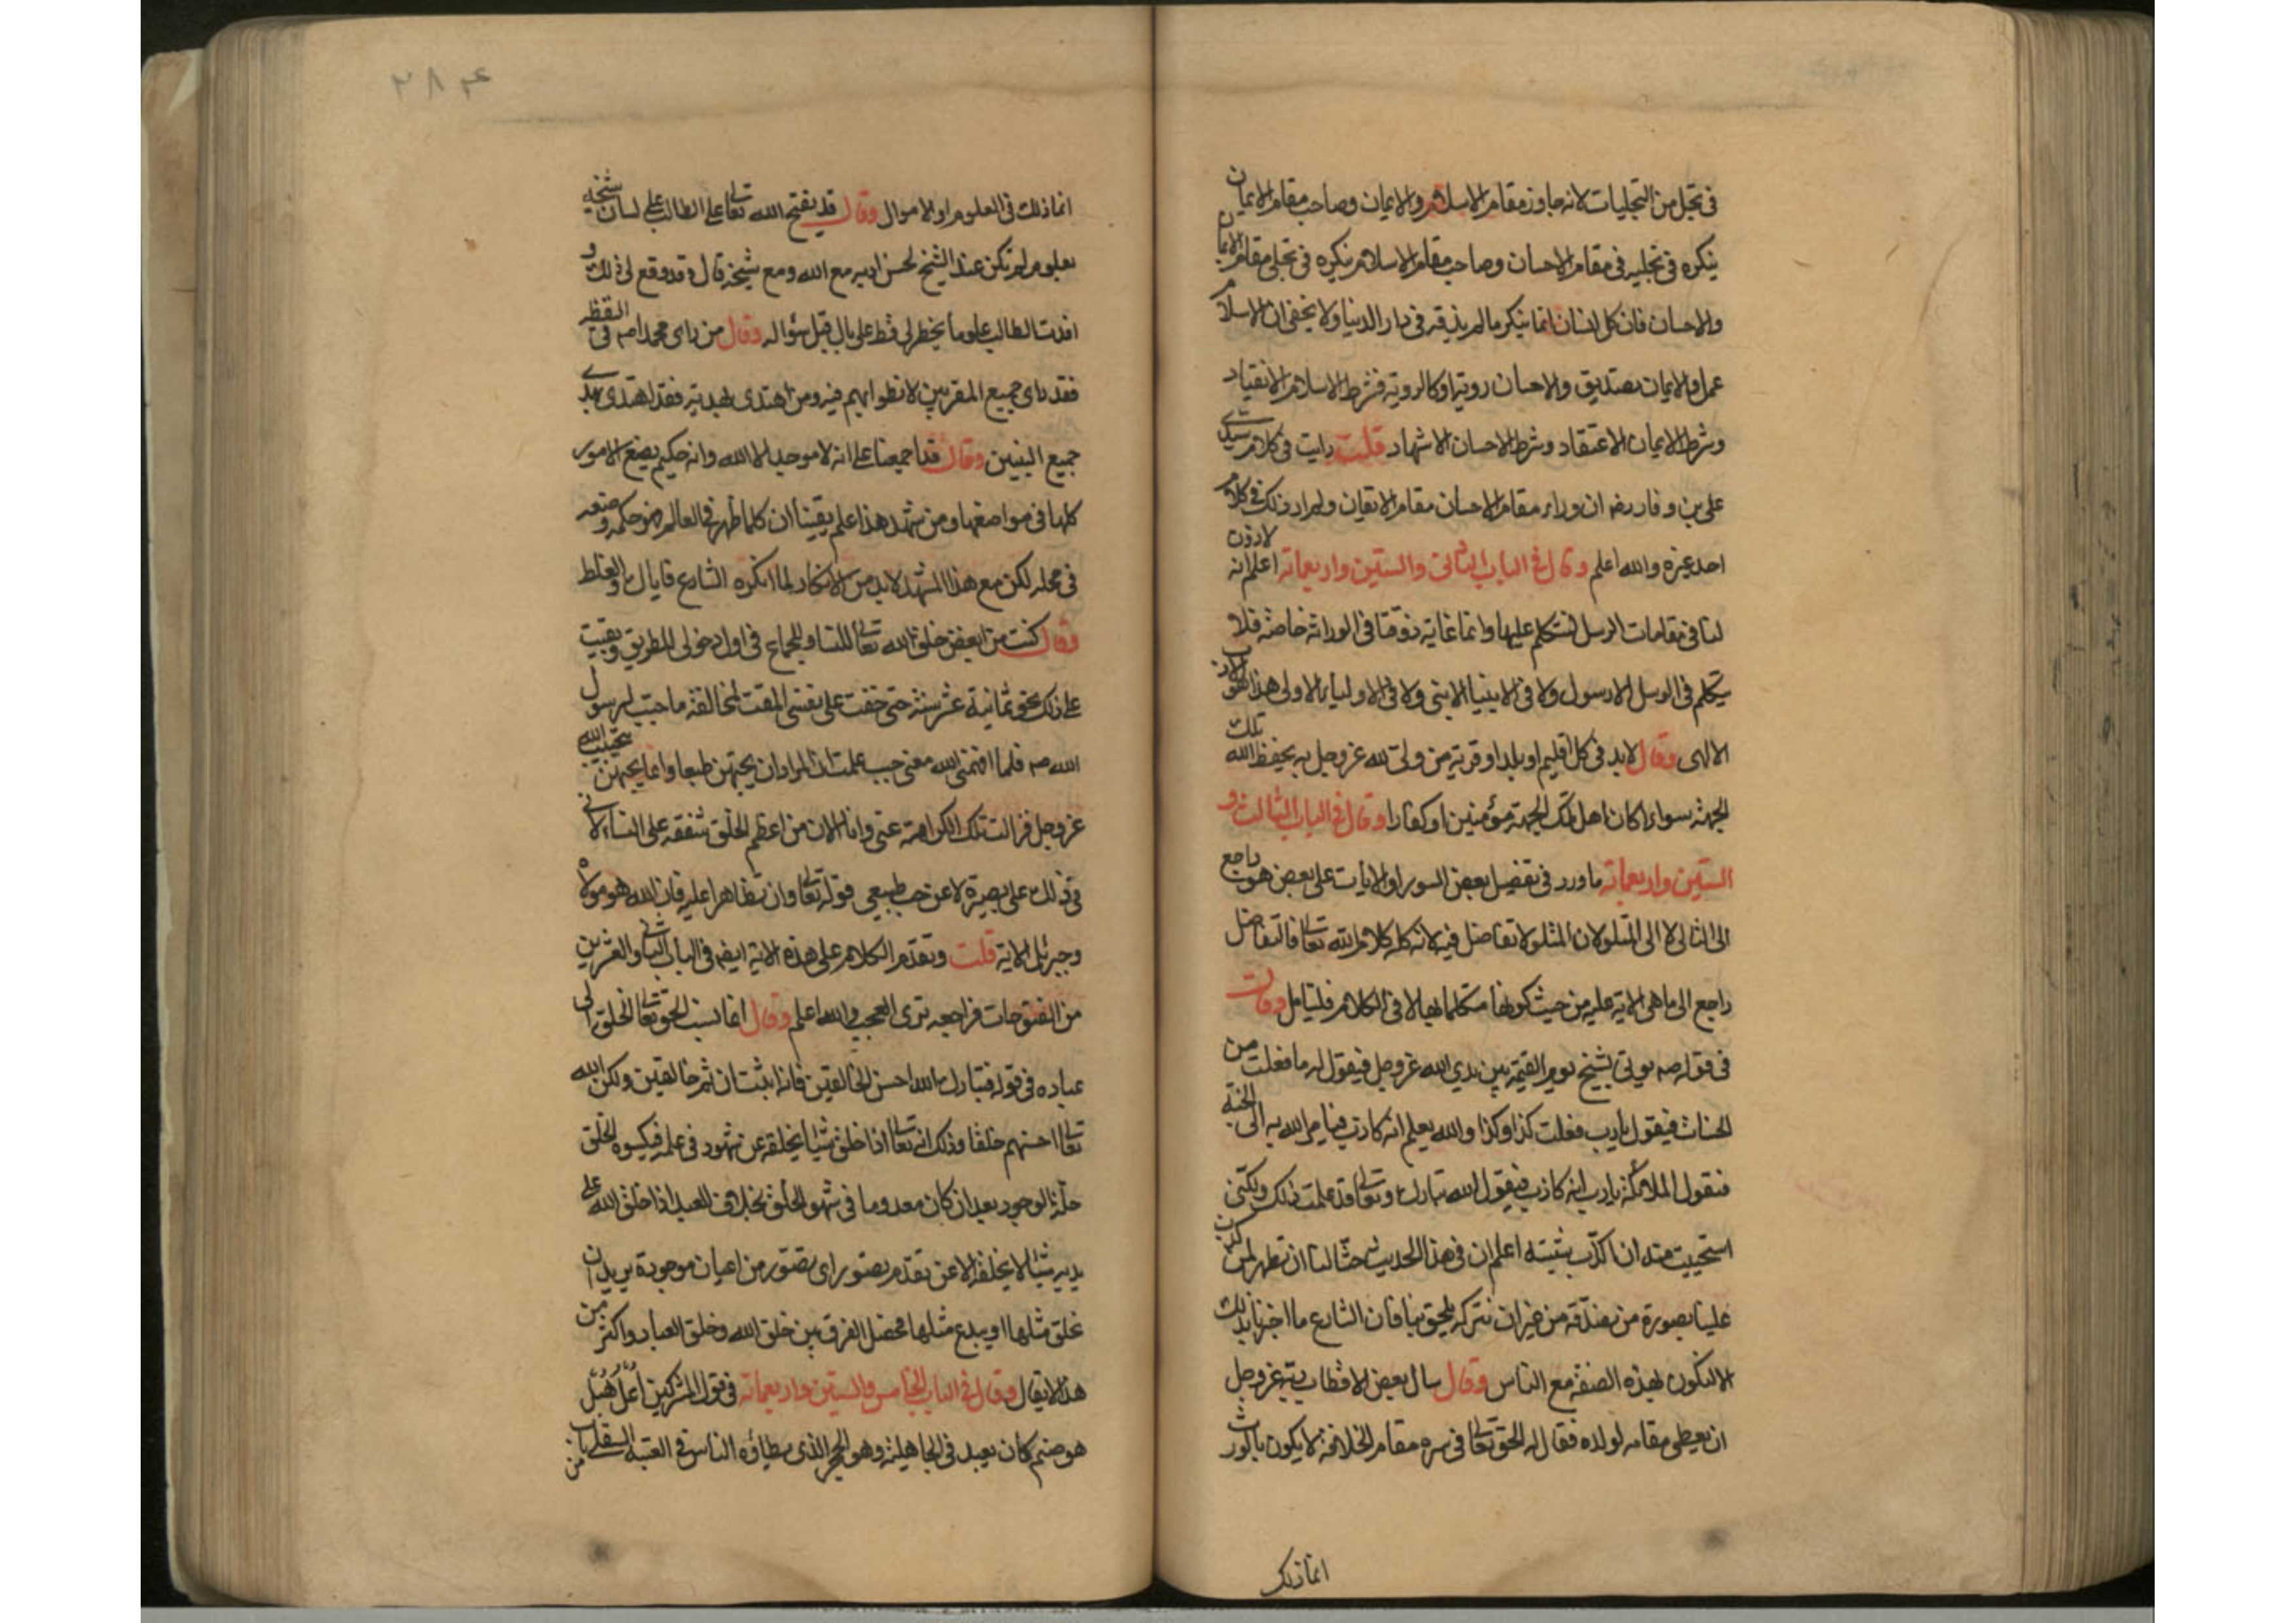 في تجل من التجليات لانه جاوز مقام الاسلام والايمان وصاحب مقام الايمان
ينكره في تجليه في مقام الاحسان وصاحب مقام الاسلام ينكره في تجلي مقام الايمان
والاحسان فان كل انسان انما ينكر ما لم يذقه في دار الدنيا ولا يخفى ان الاسلام
عمل والايمان تصديق والاحسان روية او كالروية فشرط الاسلام الانقياد
وشرط الايمان الاعتقاد وشرط الاحسان الاشهاد قلت رايت في كلام سيدي
علي بن وفا رضه ان وراء مقام الاحسان مقام الايقان ولم ار ذلك في كلام
احد غيره والله اعلم وقال في الباب الثاني والستين واربعمائة اعلم انه لا ذوق
لنا في مقامات الرسل لنتكلم عليها وانما غاية ذوقنا في الوراثة خاصة فلا
يتكلم في الرسل الا رسول ولا في الانبيا الا نبي ولا في الاولياء الا ولي هذا هو الادب
الالهي وقال لابد في كل اقليم او بلد او قرية من ولي لله عز وجل به يحفظ الله تلك
الجهة سواء كان اهل تلك الجهة مؤمنين او كفارا وقال في الباب الثالث و
الستين واربعمائة ما ورد في تفضيل بعض السور او الايات على بعض هو راجع
الى التالي لا الى المتلو لان المتلو لا تفاضل فيه لانه كله كلام الله تعالى فالتفاضل
راجع الى ما هي الاية عليه من حيث كونها متكلما بها لا في الكلام فليتامل وقال
في قوله صه يوتى بشيخ يوم القيمة بين يدي الله عز وجل فيقول له ما فعلت من
الحسنات فيقول يا رب فعلت كذا وكذا والله يعلم انه كاذب فيامر الله به الى الجنة
فتقول الملائكة يا رب انه كاذب فيقول الله تبارك وتعالى قد علمت ذلك ولكني
استحييت منه ان اكذب شيبته اعلم ان في هذا الحديث حثا لنا ان نظهر لمن كذب
علينا بصورة من نصدقه من غير ان نتركه يلحق بنا فان الشارع ما اخبرنا بذلك
الا لنكون بهذه الصفة مع الناس وقال سال بعض الاقطاب ربه عز وجل
ان يعطي مقامه لولده فقال له الحق تعالى في سره مقام الخلافة لا يكون بالورث
انما ذلك
٢٨٤
انما ذلك في العلوم او الاموال وقال قد يفتح الله تعالى على الطالب على لسان شيخه
بعلوم لم تكن عند الشيخ لحسن ادبه مع الله ومع شيخه قال وقد وقع لي ذلك و
افدت الطالب علوما لم يخطر لي قط على بال قبل سؤاله وقال من راى محمدا صه في اليقظة
فقد راى جميع المقربين لانطوائهم فيه ومن اهتدى بهديه فقد اهتدى بهدي
جميع النبيين وقال قد اجمعنا على انه لا موجد الا الله وانه حكيم يضع الامور
كلها في مواضعها ومن شهد هذا علم يقينا ان كلما ظهر في العالم فهو حكمة وضعه
في محله لكن مع هذا المشهد لابد من الانكار لما انكره الشارع فاياك والغلط
وقال كنت من ابغض خلق الله تعالى للنسا وللجماع في اول دخولي للطريق وبقيت
على ذلك نحو ثمانية عشر سنة حتى خفت على نفسي المقت لمخالفة ما حبب لرسول
الله صه فلما افهمني الله معنى حبب علمت ان المراد ان يحبهن طبعا وانما يحبهن بتحبيب الله
عز وجل فزالت تلك الكراهة عني وانا الان من اعظم الخلق شفقة على النساء لاني
في ذلك على بصيرة لا عن حب طبيعي قوله تعالى وان تظاهرا عليه فان الله هو مولاه
وجبريل الاية قلت وتقدم الكلام على هذه الاية ايضا في الباب الثاني والعشرين
من الفتوحات فراجعه ترى العجب والله اعلم وقال انما نسب الحق تعالى الخلق الى
عباده في قوله فتبارك الله احسن الخالقين فانه اثبت ان ثم خالقين ولكن الله
تعالى احسنهم خلقا وذلك انه تعالى اذا خلق شيئا يخلقه عن شهود في علمه فيكسوه الخلق
حلة الوجود بعد ان كان معدوما في شهود الخلق بخلاف العبد اذا خلق الله على
يديه شيئا لا يخلقه الا عن تقدم تصور اي تصور من اعيان موجودة يريد ان
يخلق مثلها او يبدع مثلها فحصل الفرق بين خلق الله وخلق العباد واكثر من
هذا لا يقال وقال في الباب الخامس والستين واربعمائة في قول المشركين اعل هبل
هو صنم كان يعبد في الجاهلية وهو الحجر الذي يطاؤه الناس في العتبة السفلى من باب